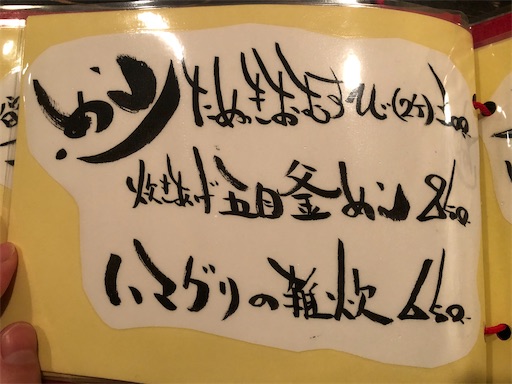 めし
たぬきおむすび(2ケ)
炊きあげ五目釜めし 850-
ハマグリの雑炊 650-